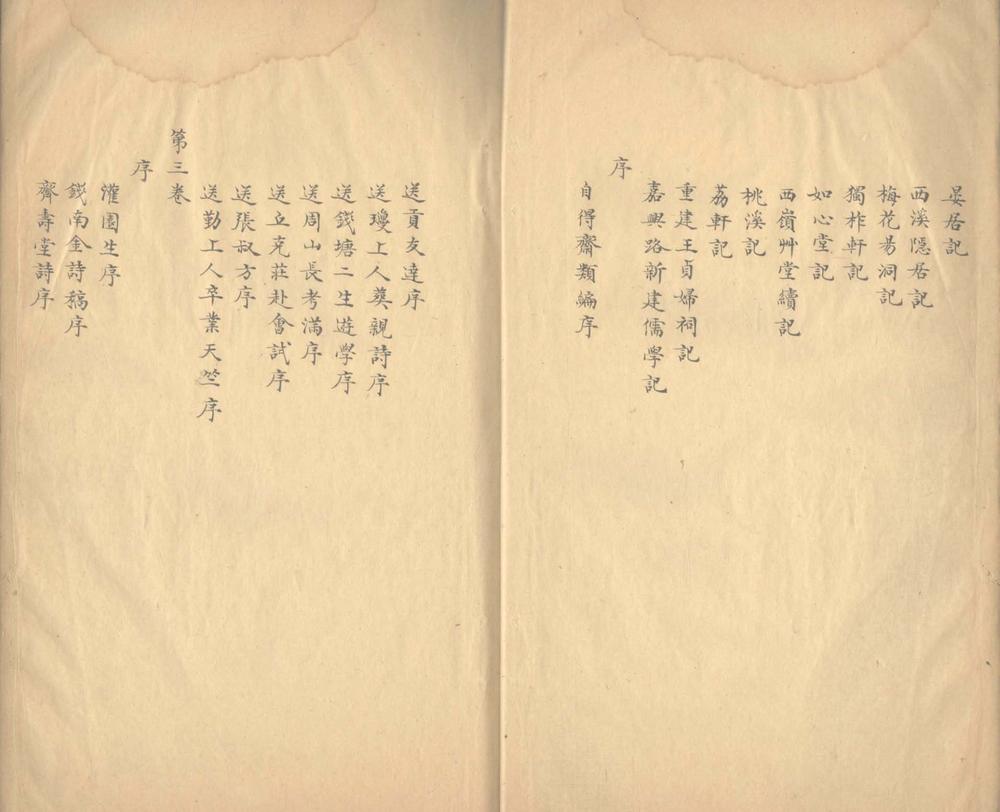 晏居記
西溪隱居記
梅花昜洞記
獨柞軒記
如心堂記
西嶺艸堂續記
桃溪記
荔軒記
重建王貞婦祠記
嘉興路新建儒學記
序
自得齋類編序
送貢友達序
送瓊上人葵親詩序
送錢塘二生遊學序
送周山長考滿序
送立克莊赴會試序
送張叔方序
送勤上人卒業天竺序
第三卷
序
灌園生序
錢南金詩稿序
齊壽堂詩序